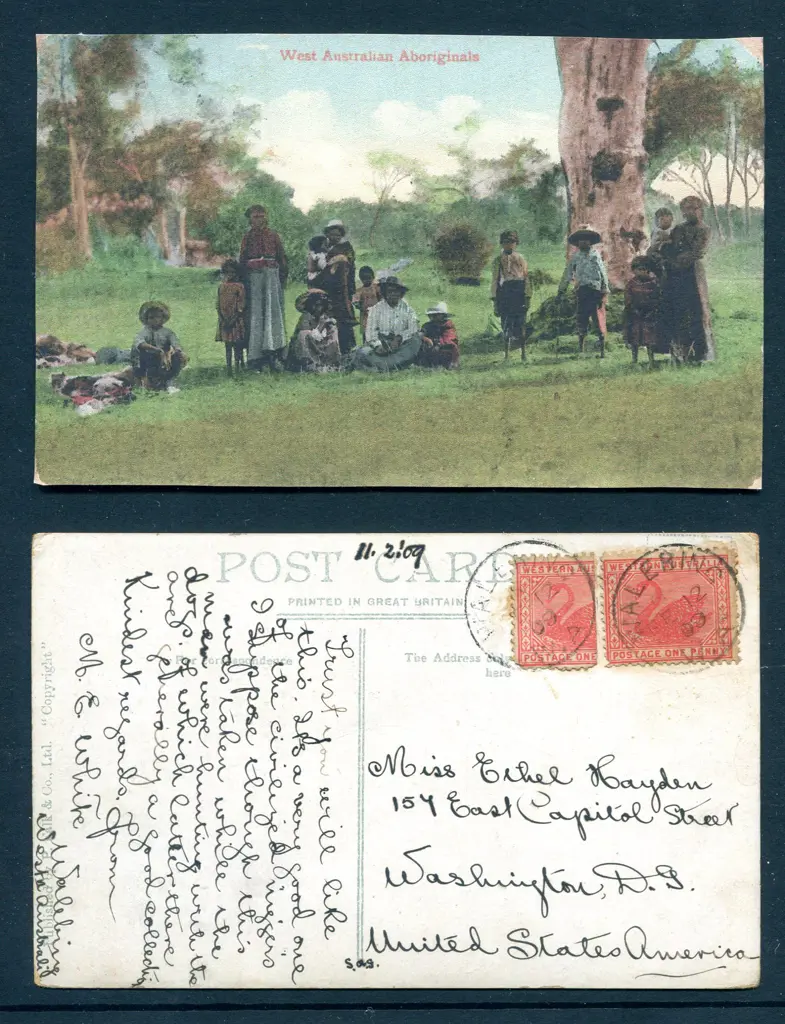 West Australian Aboriginals
POST CARD
11.2.09
PRINTED IN GREAT BRITAIN
WESTERN AUS
POSTAGE ONE
WESTERN AUSTRALIA
POSTAGE ONE PENNY
WALEBING
The Address only
here
For Correspondence
Trust you will like
this. Its a very good one
of the civilized niggers
I suppose though this
was taken while the
men were hunting with the
dogs of which later there
are generally a good collectn
Kindest regards. from
M. E. White
Walebing
West Australia
& Co., Ltd. "Copyright"
Miss Ethel Hayden
154 East Capitol Street
Washington, D.G.
United States America
S.a.g.